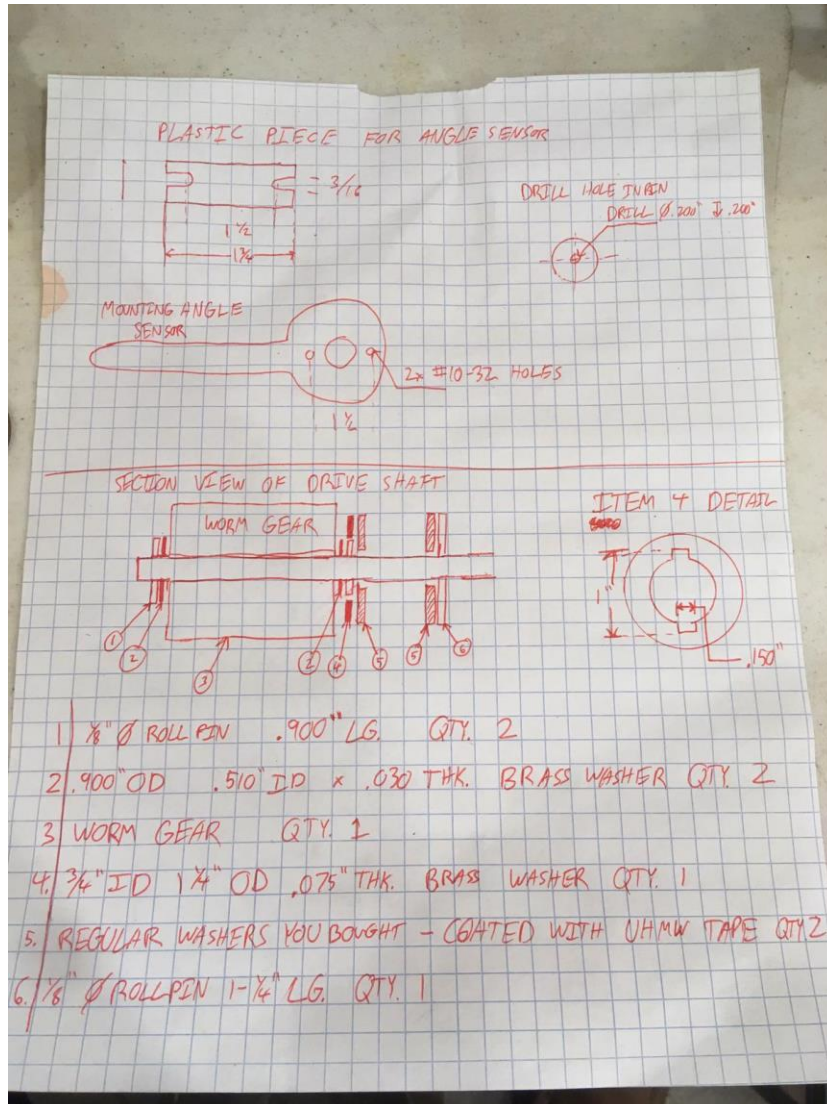 PLASTIC PIECE FOR ANGLE SENSOR
3/16
1 1/2
1 3/4
DRILL HOLE IN PIN
DRILL Ø.200" ↧ .200"
MOUNTING ANGLE
SENSOR
2x #10-32 HOLES
1 1/2
SECTION VIEW OF DRIVE SHAFT
WORM GEAR
1
2
3
2
4
5
5
6
ITEM 4 DETAIL
1"
.150"
1 1/8" Ø ROLL PIN .900" LG. QTY. 2
2 .900" OD .510" ID x .030 THK. BRASS WASHER QTY. 2
3 WORM GEAR QTY. 1
4. 3/4" ID 1 1/4" OD .075" THK. BRASS WASHER QTY. 1
5. REGULAR WASHERS YOU BOUGHT - COATED WITH UHMW TAPE QTY 2
6. 1/8" Ø ROLLPIN 1-1/4" LG. QTY. 1